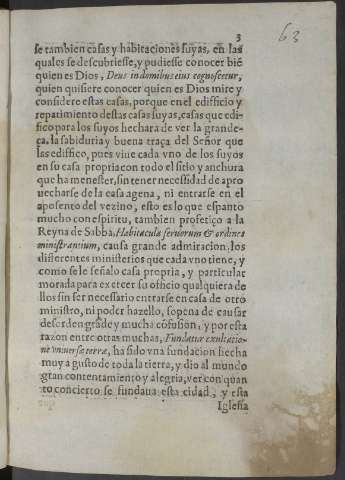 3
63
se tambien casas y habitaciones suyas, en las
quales se descubriesse, y pudiesse conocer biē
quien es Dios, Deus in domibus eius cognoscetur,
quien quisiere conocer quien es Dios mire y
considere estas casas, porque en el edifficio y
repatimiento destas casas suyas, casas que edi-
fico para los suyos hechara de ver la grande-
ça, la sabiduria y buena traça del Señor que
las edifico, pues viue cada vno de los suyos
en su casa propria con todo el sitio y anchura
que ha menester, sin tener necessidad de apro
uecharse de la casa agena, ni entrarse en el
aposento del vezino, esto es lo que espanto
mucho con espiritu, tambien profetico a la
Reyna de Sabba, Habitacula seruorum & ordines
ministrantium, causa grande admiracion. los
differentes ministerios que cada vno tiene, y
como se le señalo casa propria, y particular
morada para exercer su officio qualquiera de
llos sin ser necessario entrarse en casa de otro
ministro, ni poder hazello, sopena de causar
desorden grāde y mucha cōfusion, y por esta
razon entre otras muchas, Fundatur exultatio-
ne vniuersæ terræ, ha sido vna fundacion hecha
muy a gusto de toda la tierra, y dio al mundo
gran contentamiento y alegria, ver con quan
to concierto se fundaua esta cidad, y esta
Iglesia